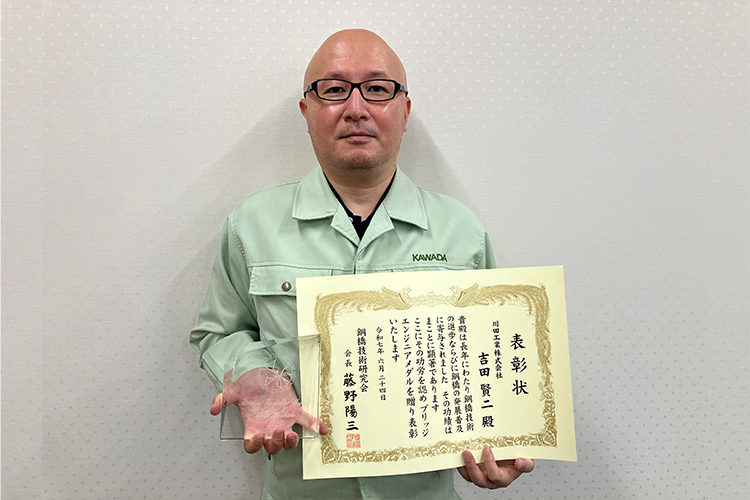 KAWADA
表彰状
川田工業株式会社
吉田賢二殿
貴殿は長年にわたり鋼橋技術
の進歩ならびに鋼橋の発展普及
に寄与されました その功績は
まことに顕著であります
ここにその功労を認め ブリッジ
エンジニアメダルを贈り表彰
いたします
令和七年 六月 二十四日
鋼橋技術研究会
会長 藤野陽三